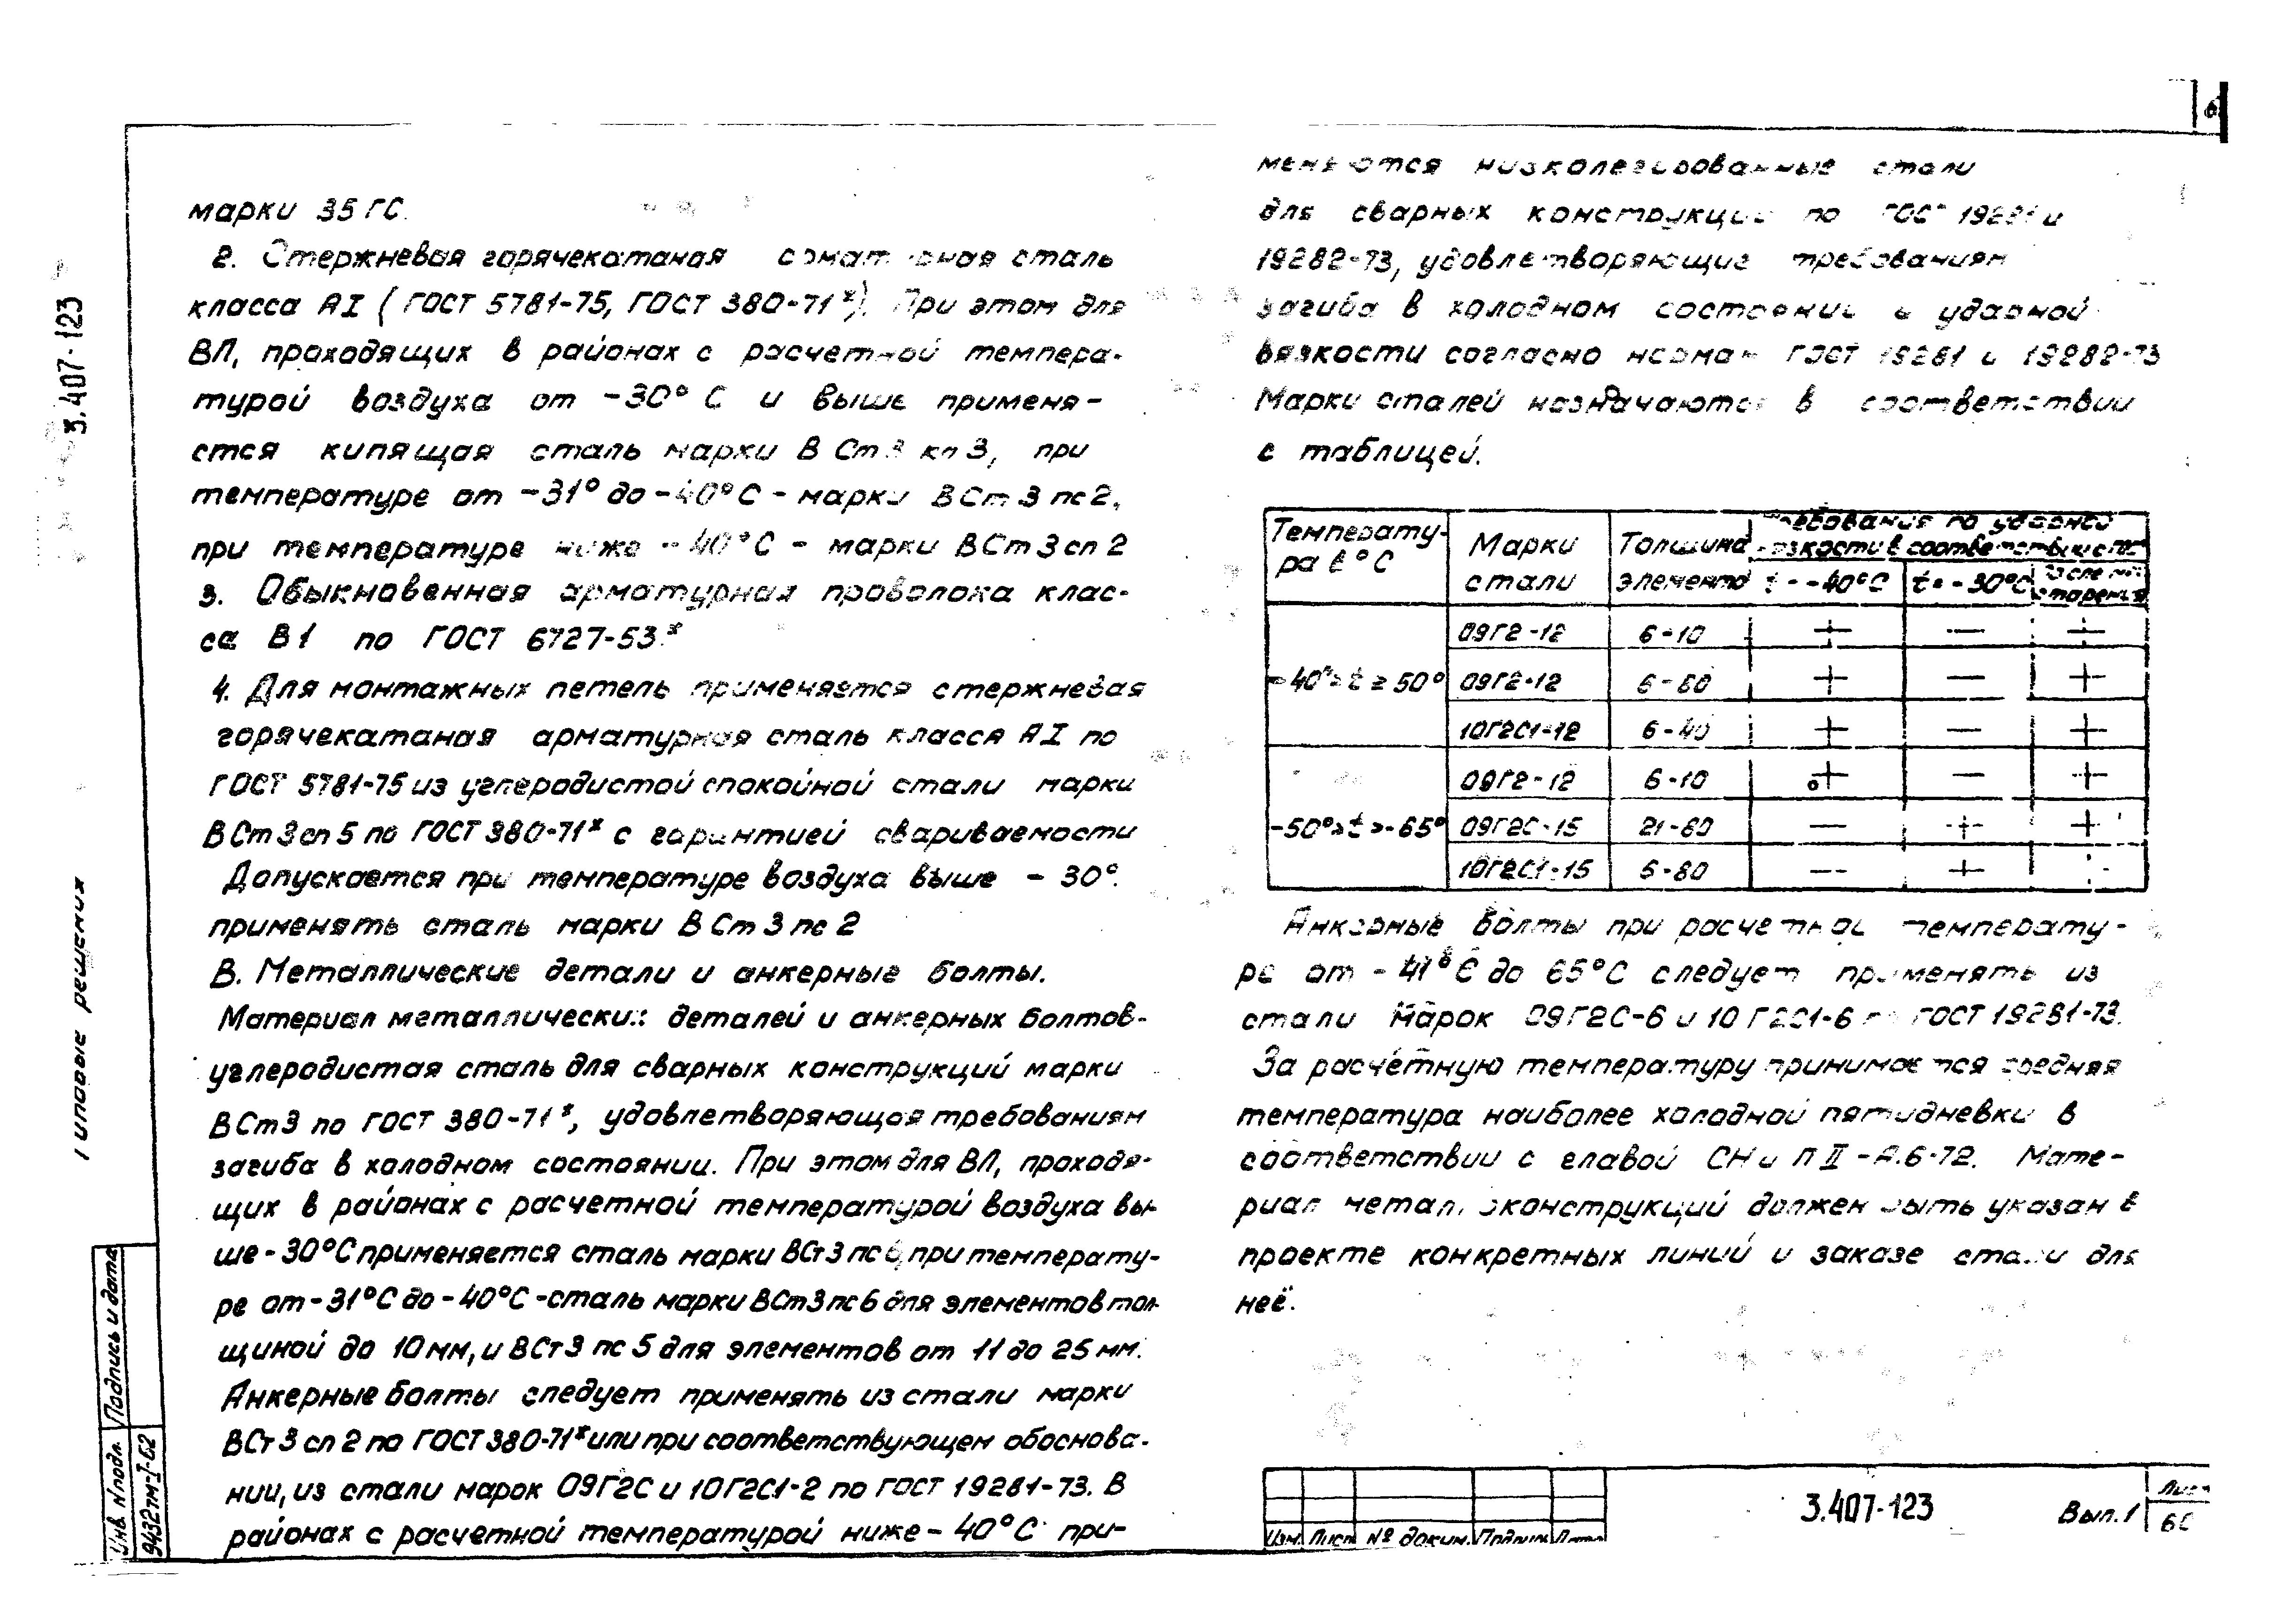 6
марки 35 ГС.
2. Стержневая горячекатаная сталь
класса АI (ГОСТ 5781-75, ГОСТ 380-71*). При этом для
ВЛ, проходящих в районах с расчетной темпера-
турой воздуха от -30° С и выше применя-
ется кипящая сталь марки В Ст 3 кп 3, при
температуре от -31° до -40°С - марки ВСт 3 пс 2,
при температуре ниже -40°С - марки ВСт 3 сп 2
3. Обыкновенная арматурная проволока клас-
са В1 по ГОСТ 6727-53.*
4. Для монтажных петель применяется стержневая
горячекатаная арматурная сталь класса АI по
ГОСТ 5781-75 из углеродистой спокойной стали марки
ВСт 3 сп 5 по ГОСТ 380-71* с гарантией свариваемости
Допускается при температуре воздуха выше - 30°.
применять сталь марки В Ст 3 пс 2
В. Металлические детали и анкерные болты.
Материал металлических деталей и анкерных болтов-
углеродистая сталь для сварных конструкций марки
ВСт3 по ГОСТ 380-71*, удовлетворяющая требованиям
загиба в холодном состоянии. При этом для ВЛ, проходя-
щих в районах с расчетной температурой воздуха вы-
ше -30°С применяется сталь марки ВСт 3 пс 6, при температу-
ре от -31°С до -40°С -сталь марки ВСт 3 пс 6 для элементов тол-
щиной до 10 мм, и ВСт 3 пс 5 для элементов от 11 до 25 мм.
Анкерные болты следует применять из стали марки
ВСт 3 сп 2 по ГОСТ 380-71* или при соответствующем обоснова-
нии, из стали марок 09Г2С и 10Г2С1-2 по ГОСТ 19281-73. В
районах с расчетной температурой ниже - 40°С при-
меняются низколегированные стали
для сварных конструкций по ГОСТ 19281 и
19282-73, удовлетворяющие требованиям
загиба в холодном состоянии и ударной
вязкости согласно нормам ГОСТ 19281 и 19282-73
Марки сталей назначаются в соответствии
с таблицей.
Температу-
ра в °С
Марки
стали
Толщина
элемента
Требования по ударной
вязкости в соответствии с
t = -40°С t = -30°С После
старения
-40°≥ t ≥ 50°
09Г2-12 6-10 + — +
09Г2-12 6-80 + — +
10Г2С1-12 6-40 + — +
-50°≥ t >-65°
09Г2-12 6-10 + — +
09Г2С-15 21-60 — + +
10Г2С1-15 — +
Анкерные болты при расчетной температу-
ре от -41°С до 65°С следует применять из
стали марок 09Г2С-6 и 10Г2С1-6 по ГОСТ 19281-73.
За расчётную температуру принимается средняя
температура наиболее холодной пятидневки в
соответствии с главой СН и П II -А.6-72. Мате-
риал металлоконструкций должен быть указан в
проекте конкретных линий и заказе стали для
неё.
3.407-123
Типовые решения
Подпись и дата
Инв. N подл.
9432тм-I-62
Изм. Лист № докум. Подпись Дата
3.407-123
Вып. 1
Лист